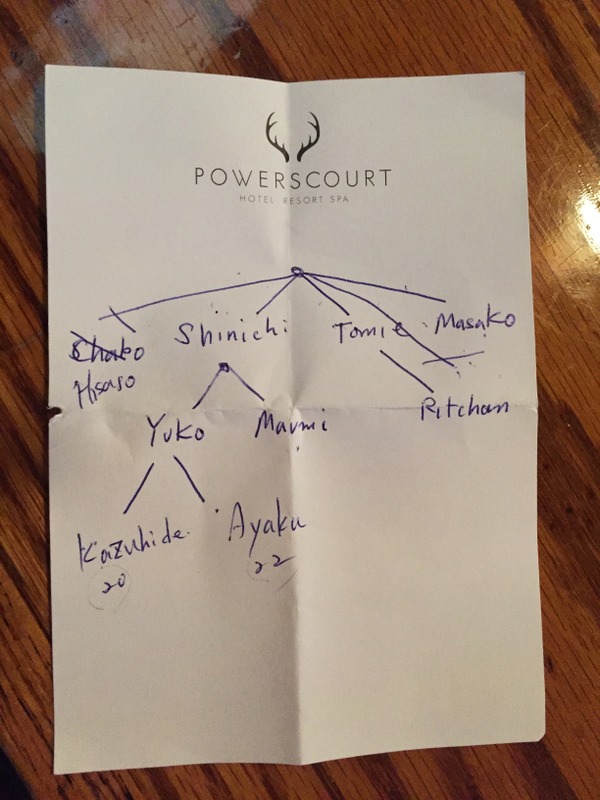 POWERSCOURT
HOTEL RESORT SPA
Shinichi
Tomie
Masako
Chako
Hisaso
Ritchan
Yuko
Maumi
Kazuhide
Ayaku
20
22